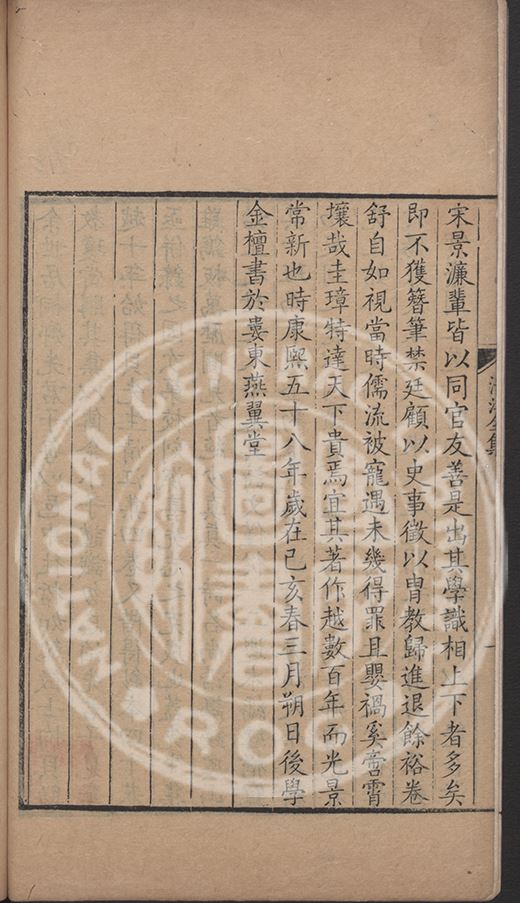 宋景濂輩皆以同官友善是出其學識相上下者多矣
即不獲簪筆禁廷顧以史事徵以胄教歸進退餘裕卷
舒自如視當時儒流被寵遇未幾得罪且嬰禍奚啻霄
壤哉圭璋特達天下貴焉宜其著作越數百年而光景
常新也時康熙五十八年歲在己亥春三月朔日後學
金檀書於婁東燕翼堂